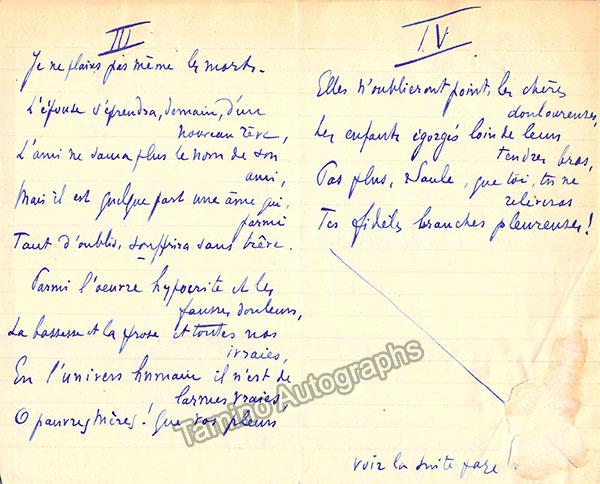 III
Je ne plains pas même les morts.
L'épouse s'éprendra, demain, d'un
nouveau rêve,
L'ami ne saura plus le nom de son
ami,
Mais il est quelque part une âme qui,
parmi
Tant d'oublis, souffrira sans trêve.
Parmi l'oeuvre hypocrite et les
fausses douleurs,
La bassesse et la prose et toutes nos
ivraies,
En l'univers humain il n'est de
larmes vraies,
O pauvres Mères! que vos pleurs
IV
Elles n'oublieront point, les chères
douloureuses,
Les enfants égorgés loin de leurs
tendres bras,
Pas plus, Saule, que toi, tu ne
relèveras
Tes fidèles branches pleureuses!
voir la suite page
Tamino Autographs